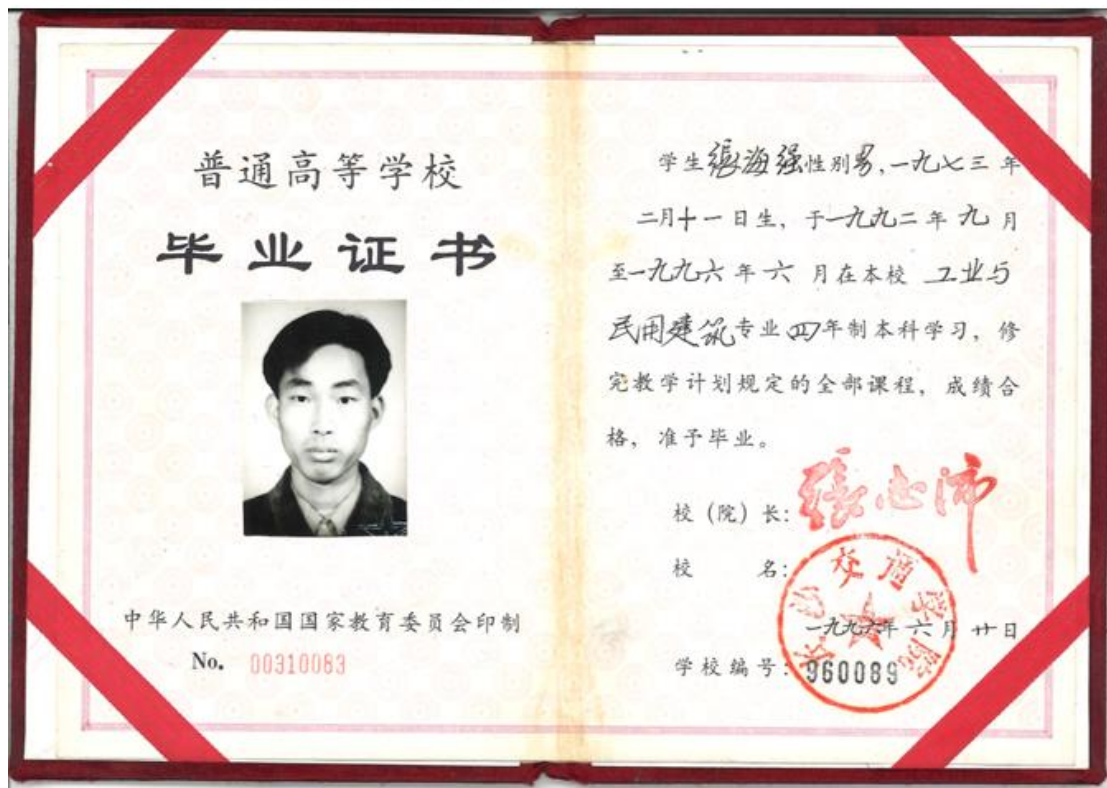 普通高等学校
毕业证书
中华人民共和国国家教育委员会印制
No. 00310083
学生張海强性别男,一九七三年
二月十一日生，于一九九二年九月
至一九九六年六月在本校 工业与
民用建筑专业四年制本科学习，修
完教学计划规定的全部课程，成绩合
格，准予毕业。
校（院）长:
校 名:
长沙交通学院
一九九六年六月廿日
学校编号: 960089